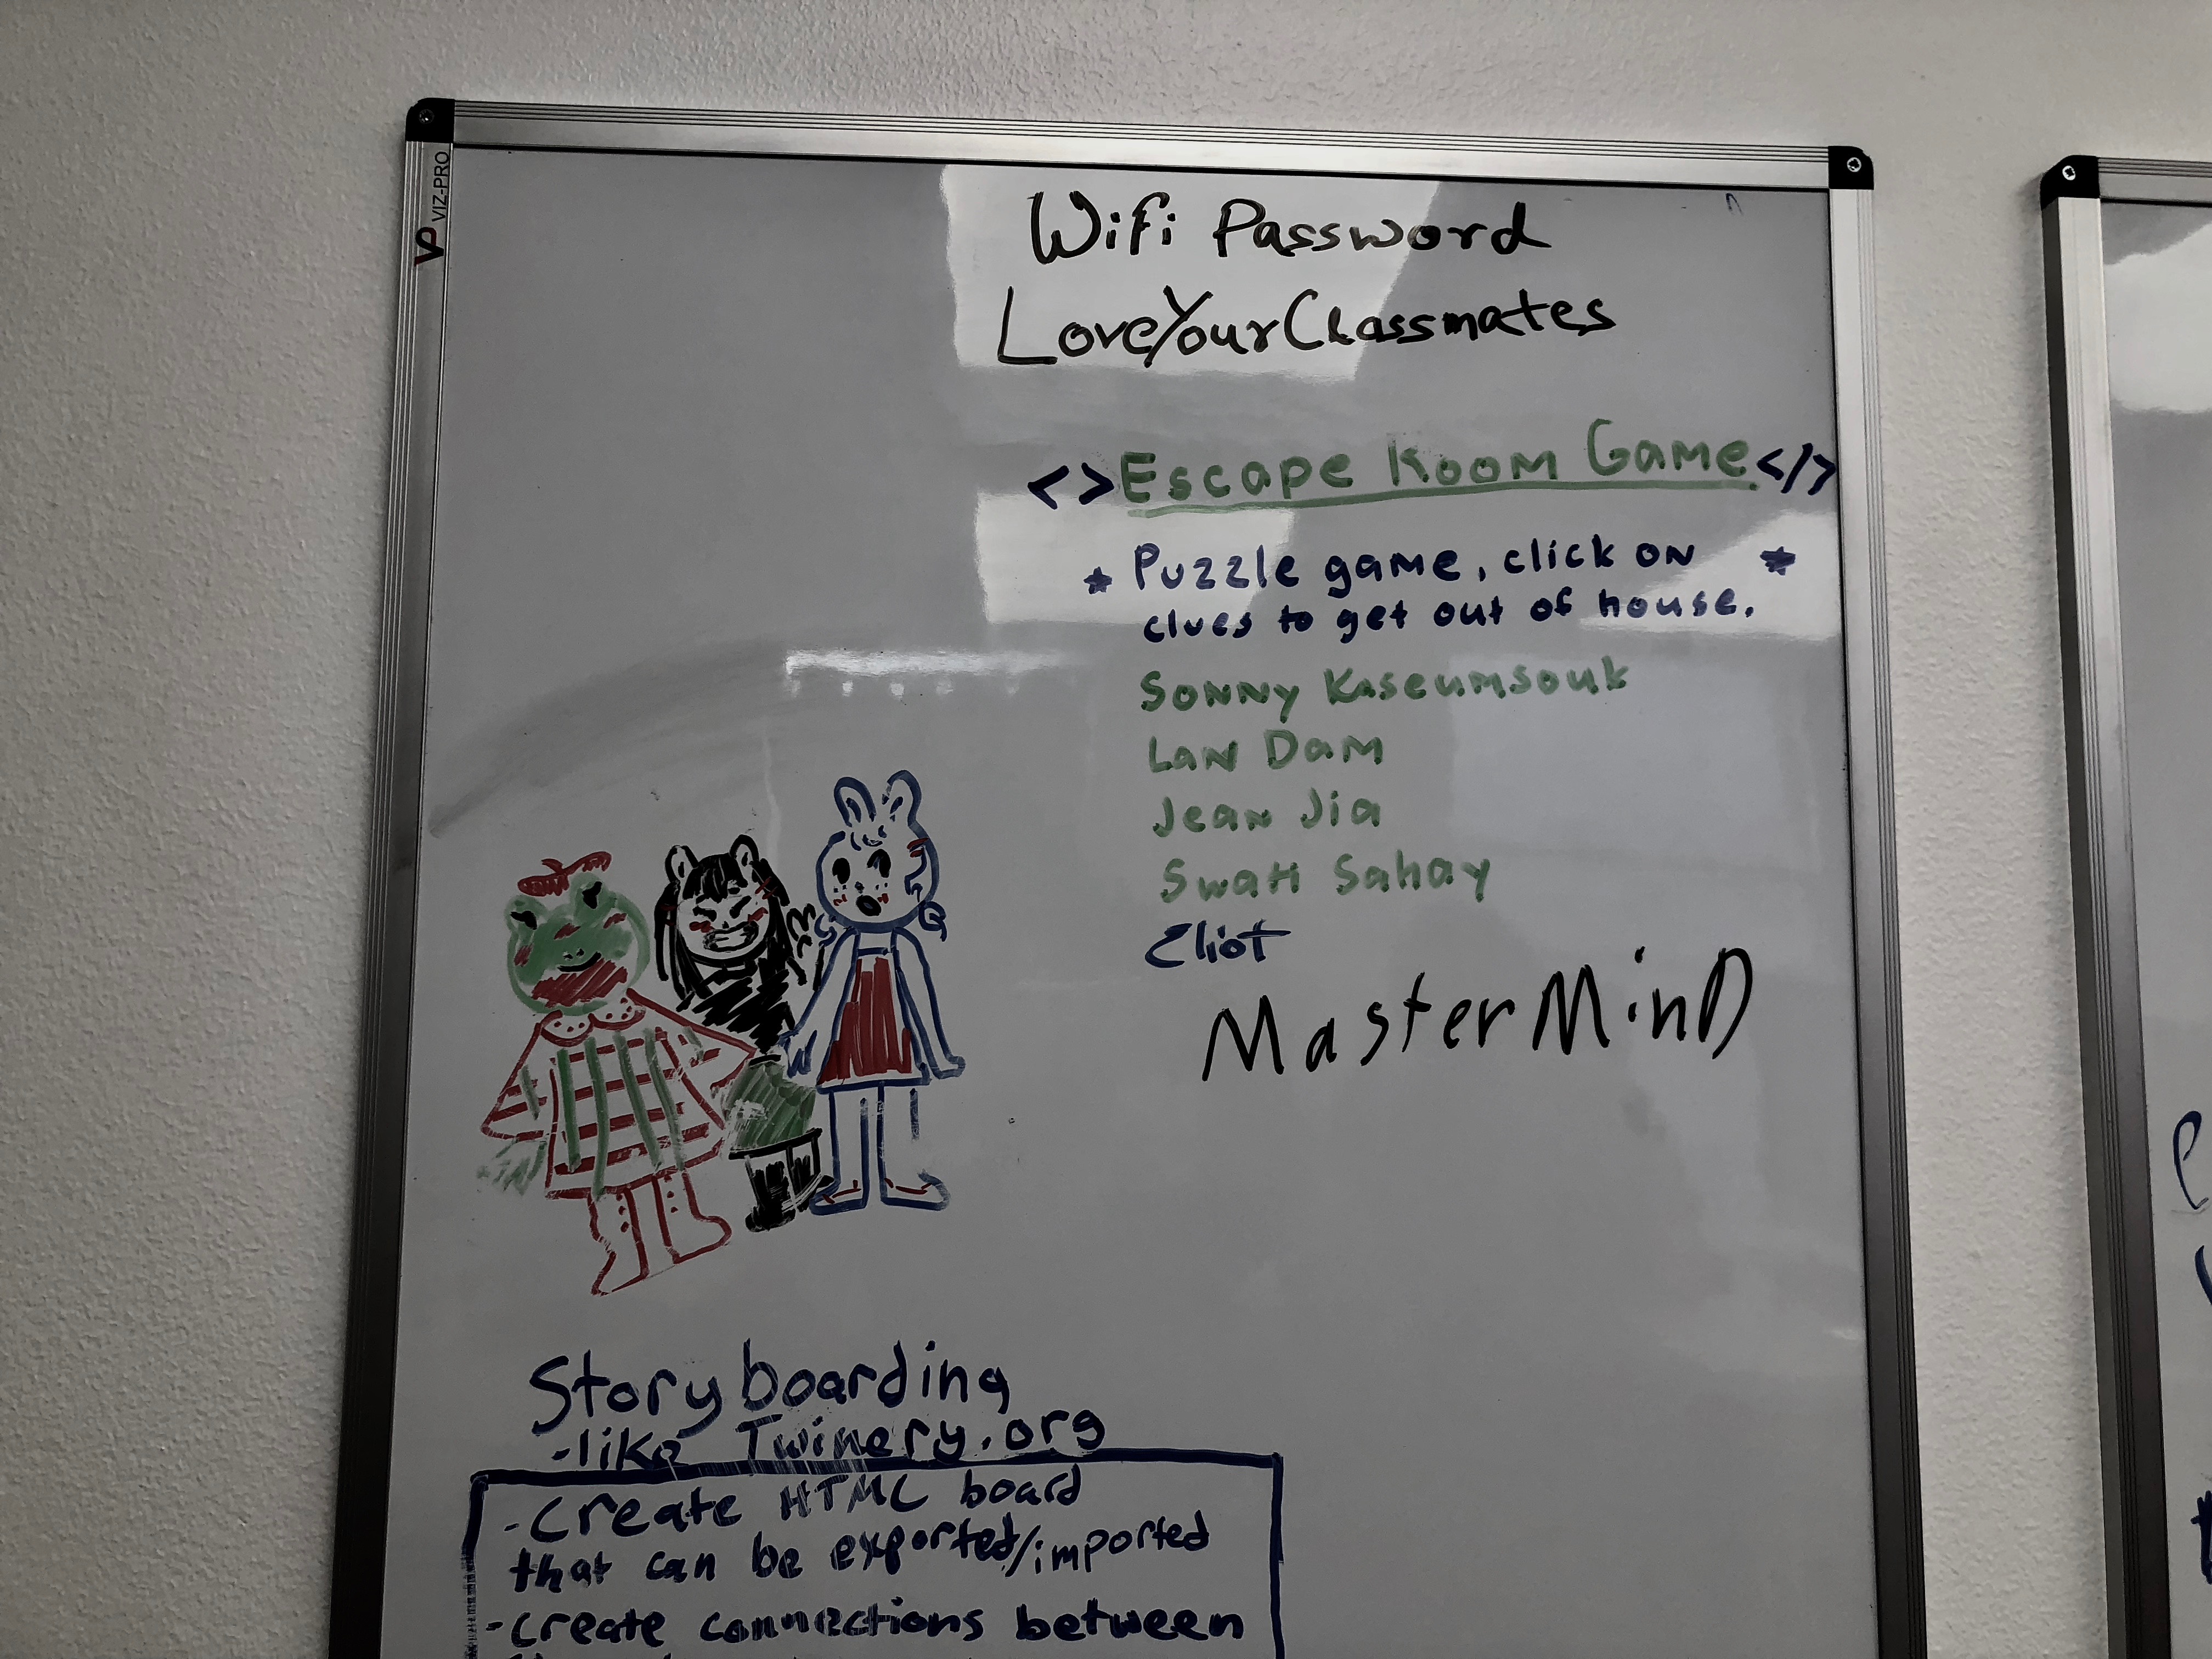 VIZ-PRO
Wifi Password
LoveYourClassmates
<> Escape Room Game </>
* Puzzle game, click on *
clues to get out of house.
Sonny Kaseumsouk
Lan Dam
Jean Jia
Swati Sahay
Eliot
MasterMinD
Storyboarding
-like Twinery.org
-Create HTML board
that can be exported/imported
-create connections between